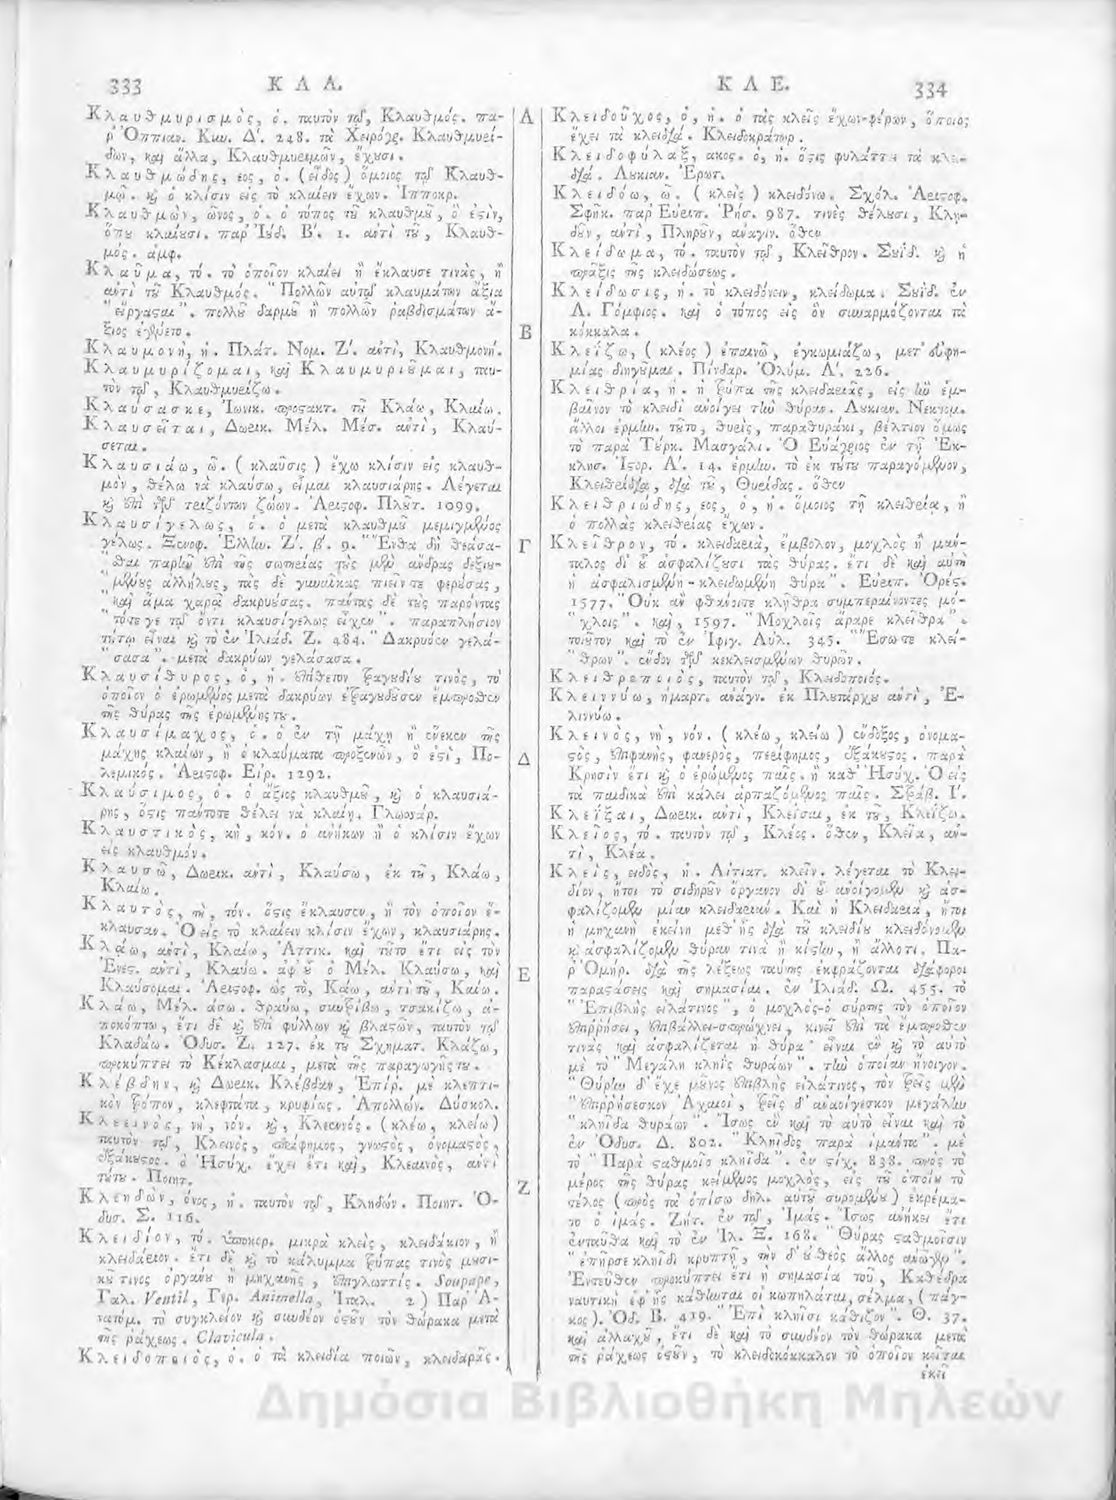 333 Κ Λ Α.
Κλαυθμυρισμὸς, ὁ. ταυτὸν τῷ, Κλαυθμός. πα-
ρ' Ὀππιαν. Κυν. Δ'. 248. τὰ Χειρόγρ. Κλαυθμυρί-
δων, καὶ ἄλλα, Κλαυθμυριμῶν, ἔχουσι.
Κλαυθμώδης, εος, ὁ. (εἶδος) ὅμοιος τῷ Κλαυθ-
μῷ. καὶ ὁ κλίσιν εἰς τὸ κλαίειν ἔχων. Ἱπποκρ.
Κλαυθμὼν, ῶνος, ὁ. ὁ τόπος τοῦ κλαυθμοῦ, ὅ ἐστιν,
ὅπου κλαίουσι. παρ' Ἰουδ. Β'. 1. ἀντὶ τοῦ, Κλαυθ-
μός. ἀμφ.
Κλαῦμα, τό. τὸ ὁποῖον κλαίει ἢ ἔκλαυσε τινὰς, ἢ
ἀντὶ τοῦ Κλαυθμός. "Πολλῶν αὐτῷ κλαυμάτων ἄξια
"εἴργασαι". πολλοῦ δαρμοῦ ἢ πολλῶν ραβδισμάτων ἄ-
ξιος ἐγένετο.
Κλαυμονὴ, ἡ. Πλάτ. Νομ. Ζ'. ἀντὶ, Κλαυθμονή.
Κλαυμυρίζομαι, καὶ Κλαυμυριοῦμαι, ταυ-
τὸν τῷ, Κλαυθμυρίζω.
Κλαύσασκε, Ἰωνικ. προστακτ. τοῦ Κλάω, Κλαίω.
Κλαυσεῖται, Δωρικ. Μέλ. Μέσ. ἀντὶ, Κλαύ-
σεται.
Κλαυσιάω, ῶ. (κλαῦσις) ἔχω κλίσιν εἰς κλαυθ-
μὸν, θέλω νὰ κλαύσω, εἶμαι κλαυσιάρης. Λέγεται
καὶ ἐπὶ τῶν τριζόντων ζώων. Ἀριστοφ. Πλοῦτ. 1099.
Κλαυσίγελως, ὁ. ὁ μετὰ κλαυθμοῦ μεμιγμένος
γέλως. Ξενοφ. Ἑλλην. Ζ'. β'. 9. "Ἔνθα δὴ θεάσα-
"σθαι παρῆν ἐπὶ τῆς σωτηρίας τοὺς μὲν ἄνδρας δεξιου-
"μένους ἀλλήλους, τὰς δὲ γυναῖκας πιεῖν τε φερούσας,
"καὶ ἅμα χαρᾷ δακρυούσας. πάντας δὲ τοὺς παρόντας
"τότε γε τῷ ὄντι κλαυσίγελως εἶχεν". παραπλήσιον
τούτῳ εἶναι καὶ τὸ ἐν Ἰλιάδ. Ζ. 484. "Δακρυόεν γελά-
"σασα". μετὰ δακρύων γελάσασα.
Κλαυσίθυρος, ὁ, ἡ. ἐπίθετον τραγουδίου τινὸς, τὸ
ὁποῖον ὁ ἐρώμενος μετὰ δακρύων ἐτραγουδοῦσεν ἔμπροσθεν
τῆς θύρας τῆς ἐρωμένης του.
Κλαυσίμαχος, ὁ. ὁ ἐν τῇ μάχῃ ἢ ἕνεκεν τῆς
μάχης κλαίων, ἢ ὁ κλαύματα προξενῶν, ὅ ἐστι, Πο-
λεμικός. Ἀριστοφ. Εἰρ. 1292.
Κλαύσιμος, ὁ. ὁ ἄξιος κλαυθμοῦ, καὶ ὁ κλαυσιά-
ρης, ὅστις πάντοτε θέλει νὰ κλαίῃ. Γλωσσάρ.
Κλαυστικὸς, κὴ, κόν. ὁ ἀνήκων ἢ ὁ κλίσιν ἔχων
εἰς κλαυθμόν.
Κλαυσῶ, Δωρικ. ἀντὶ, Κλαύσω, ἐκ τοῦ, Κλάω,
Κλαίω.
Κλαυτὸς, τὴ, τόν. ὅστις ἔκλαυσεν, ἢ τὸν ὁποῖον ἔ-
κλαυσαν. Ὁ εἰς τὸ κλαίειν κλίσιν ἔχων, κλαυσιάρης.
Κλάω, ἀντὶ, Κλαίω, Ἀττικ. καὶ τοῦτο ἔτι εἰς τὸν
Ἐνεστ. ἀντὶ, Κλαύω. ἀφ' οὗ ὁ Μέλ. Κλαύσω, καὶ
Κλαύσομαι. Ἀριστοφ. ὡς τὸ, Κάω, ἀντὶ τοῦ, Καίω.
Κλάω, Μέλ. άσω. θραύω, συντρίβω, τσακίζω, ἀ-
ποκόπτω, ἔτι δὲ καὶ ἐπὶ φύλλων καὶ βλαστῶν, ταυτὸν τῷ
Κλαδάω. Ὀδυσ. Ζ. 127. ἐκ τοῦ Σχηματ. Κλάζω,
προκύπτει τὸ Κέκλασμαι, μετὰ τῆς παραγωγῆς του.
Κλέβδην, καὶ Δωρικ. Κλέβδαν, Ἐπίρ. μὲ κλεπτι-
κὸν τρόπον, κλεφτάτα, κρυφίως. Ἀπολλων. Δύσκολ.
Κλεεινὸς, νὴ, νόν. καὶ, Κλεεννός. (κλέω, κλείω)
ταυτὸν τῷ, Κλεινὸς, περίφημος, γνωστὸς, ὀνομαστὸς,
ἐξάκουστος. ὁ Ἡσύχ. ἔχει ἔτι καὶ, Κλεαινὸς, ἀντὶ
τούτου. Ποιητ.
Κλεηδὼν, όνος, ἡ. ταυτὸν τῷ, Κληδών. Ποιητ. Ὀ-
δυσ. Σ. 116.
Κλειδίον, τό. ὑποκορ. μικρὰ κλεὶς, κλειδάκιον, ἢ
κλειδάριον. ἔτι δὲ καὶ τὸ κάλυμμα τρύπας τινὸς μουσι-
κοῦ τινος ὀργάνου ἢ μηχανῆς, ἐπιγλωττίς. Soupape,
Γαλ. Ventil, Γερ. Animella, Ἰταλ. 2) Παρ' Ἀ-
νατόμ. τὸ συγκλεῖον καὶ συνδέον ὀστοῦν τὸν θώρακα μετὰ
τῆς ράχεως. Clavicula.
Κλειδοποιὸς, ὁ. ὁ τὰ κλειδία ποιῶν, κλειδαρᾶς.
Α
Β
Γ
Δ
Ε
Ζ
Κ Λ Ε. 334
Κλειδοῦχος, ὁ, ἡ. ὁ τὰς κλεῖς ἔχων-φέρων, ὅποιος
ἔχει τὰ κλειδία. Κλειδοκράτωρ.
Κλειδοφύλαξ, ακος. ὁ, ἡ. ὅστις φυλάττει τὰ κλει-
δία. Λουκιαν. Ἔρωτ.
Κλειδόω, ῶ. (κλεὶς) κλειδόνω. Σχόλ. Ἀριστοφ.
Σφηκ. παρ' Εὐριπ. Ῥησ. 987. τινὲς θέλουσι, Κλῃ-
δοῦν, ἀντὶ, Πληροῦν, ἀνάγιν. ὅθεν
Κλείδωμα, τό. ταυτὸν τῷ, Κλεῖθρον. Σουΐδ. καὶ ἡ
πρᾶξις τῆς κλειδώσεως.
Κλείδωσις, ἡ. τὸ κλειδόνειν, κλείδωμα. Σουΐδ. ἐν
Λ. Γόμφιος. καὶ ὁ τόπος εἰς ὃν συναρμόζονται τὰ
κόκκαλα.
Κλεΐζω, (κλέος) ἐπαινῶ, ἐγκωμιάζω, μετ' εὐφη-
μίας διηγοῦμαι. Πίνδαρ. Ὀλύμ. Α'. 226.
Κλειθρία, ἡ. ἡ τρύπα τῆς κλειδαριᾶς, εἰς ἣν ἐμ-
βαῖνον τὸ κλειδὶ ἀνοίγει τὴν θύραν. Λουκιαν. Νεκυομ.
ἄλλοι ἑρμην. τοῦτο, θυρὶς, παραθυράκι, βέλτιον ὅμως
τὸ παρὰ Τούρκ. Μασγάλι. Ὁ Εὐάγριος ἐν τῇ Ἐκ-
κλησ. Ἱστορ. Α'. 14. ἑρμην. τὸ ἐκ τούτου παραγόμενον,
Κλειθρίδια, διὰ τοῦ, Θυρίδας. ὅθεν
Κλειθριώδης, εος, ὁ, ἡ. ὅμοιος τῇ κλειθρίᾳ, ἢ
ὁ πολλὰς κλειθρίας ἔχων.
Κλεῖθρον, τό. κλειδαριὰ, ἔμβολον, μοχλὸς ἢ μάν-
ταλος δι' οὗ ἀσφαλίζουσι τὰς θύρας. ἔτι δὲ καὶ αὐτὴ
ἡ ἀσφαλισμένη-κλειδωμένη θύρα". Εὐριπ. Ὀρέστ.
1577. "Οὐκ ἂν φθάνοιτε κλῇθρα συμπεραίνοντες μο-
"χλοῖς". καὶ, 1597. "Μοχλοῖς ἄραρε κλεῖθρα".
τοιοῦτον καὶ τὸ ἐν Ἰφιγ. Αὐλ. 345. "Ἔσω τε κλεί-
"θρων". ἔνδον τῶν κεκλεισμένων θυρῶν.
Κλειθροποιὸς, ταυτὸν τῷ, Κλειδοποιός.
Κλειννύω, ἡμαρτ. ἀνάγν. ἐκ Πλουτάρχου ἀντὶ, Ἐ-
λιννύω.
Κλεινὸς, νὴ, νόν. (κλέω, κλείω) ἔνδοξος, ὀνομα-
στὸς, ἐπιφανὴς, φανερὸς, περίφημος, ἐξάκουστος. παρὰ
Κρησὶν ἔτι καὶ ὁ ἐρώμενος παῖς. ἢ καθ' Ἡσύχ. Ὁ εἰς
τὰ παιδικὰ ἐπὶ κάλει ἁρπαζόμενος παῖς. Στράβ. Ι'.
Κλεΐξαι, Δωρικ. ἀντὶ, Κλεΐσαι, ἐκ τοῦ, Κλεΐζω.
Κλεῖος, τό. ταυτὸν τῷ, Κλέος. ὅθεν, Κλεῖα, ἀν-
τὶ, Κλέα.
Κλεὶς, ειδὸς, ἡ. Αἰτιατ. κλεῖν. λέγεται τὸ Κλει-
δίον, ἤτοι τὸ σιδηροῦν ὄργανον δι' οὗ ἀνοίγομεν καὶ ἀσ-
φαλίζομεν μίαν κλειδαριάν. Καὶ ἡ Κλειδαριὰ, ἤτοι
ἡ μηχανὴ ἐκείνη μεθ' ἧς διὰ τοῦ κλειδίου κλειδόνομεν
καὶ ἀσφαλίζομεν θύραν τινὰ ἢ κίστην, ἢ ἄλλοτι. Πα-
ρ' Ὁμήρ. διὰ τῆς λέξεως ταύτης ἐκφράζονται διάφοροι
παραστάσεις καὶ σημασίαι. ἐν Ἰλιάδ. Ω. 455. τὸ
"Ἐπιβλὴς εἰλάτινος", ὁ μοχλὸς-ὁ σύρτης τὸν ὁποῖον
ἐπιρρήσει, ἐπιβάλλει-σπρώχνει, κινεῖ ἐπὶ τὰ ἔμπροσθεν
τινὰς καὶ ἀσφαλίζεται ἡ θύρα· εἶναι ἐν καὶ τὸ αὐτὸ
μὲ τὸ "Μεγάλη κληῒς θυράων". τὴν ὁποίαν ἤνοιγον.
"Θύρην δ' ἔχε μοῦνος ἐπιβλὴς εἰλάτινος, τὸν τρεῖς μὲν
"ἐπιρρήσεσκον Ἀχαιοὶ, τρεῖς δ' ἀναοίγεσκον μεγάλην
"κληΐδα θυράων". Ἴσως ἐν καὶ τὸ αὐτὸ εἶναι καὶ τὸ
ἐν Ὀδυσ. Δ. 802. "Κληΐδος παρὰ ἱμάντα". μὲ
τὸ "Παρὰ σταθμοῖο κληΐδα". ἐν στίχ. 838. πρὸς τὸ
μέρος τῆς θύρας κείμενος μοχλὸς, εἰς τοῦ ὁποίου τὸ
τέλος (πρὸς τὰ ὀπίσω δηλ. αὐτοῦ συρομένου) ἐκρέμα-
το ὁ ἱμάς. Ζήτ. ἐν τῷ, Ἱμάς. Ἴσως ἀνήκει ἔτι
ἐνταῦθα καὶ τὸ ἐν Ἰλ. Ξ. 168. "Θύρας σταθμοῖσιν
"ἐπῆρσε κληῗδι κρυπτῇ, τὴν δ' οὐ θεὸς ἄλλος ἀνῷγεν".
Ἐντεῦθεν προκύπτει ἔτι ἡ σημασία τοῦ, Καθέδρα
ναυτικὴ ἐφ' ἧς κάθηνται οἱ κωπηλάται, σέλμα, (πάγ-
κος). Ὀδ. Β. 419. "Ἐπὶ κληῗσι κάθιζον". Θ. 37.
καὶ ἀλλαχοῦ, ἔτι δὲ καὶ τὸ συνδέον τὸν θώρακα μετὰ
τῆς ράχεως ὀστοῦν, τὸ κλειδοκόκκαλον τὸ ὁποῖον κεῖται
ἐκεῖ
Δημόσια Βιβλιοθήκη Μηλεών